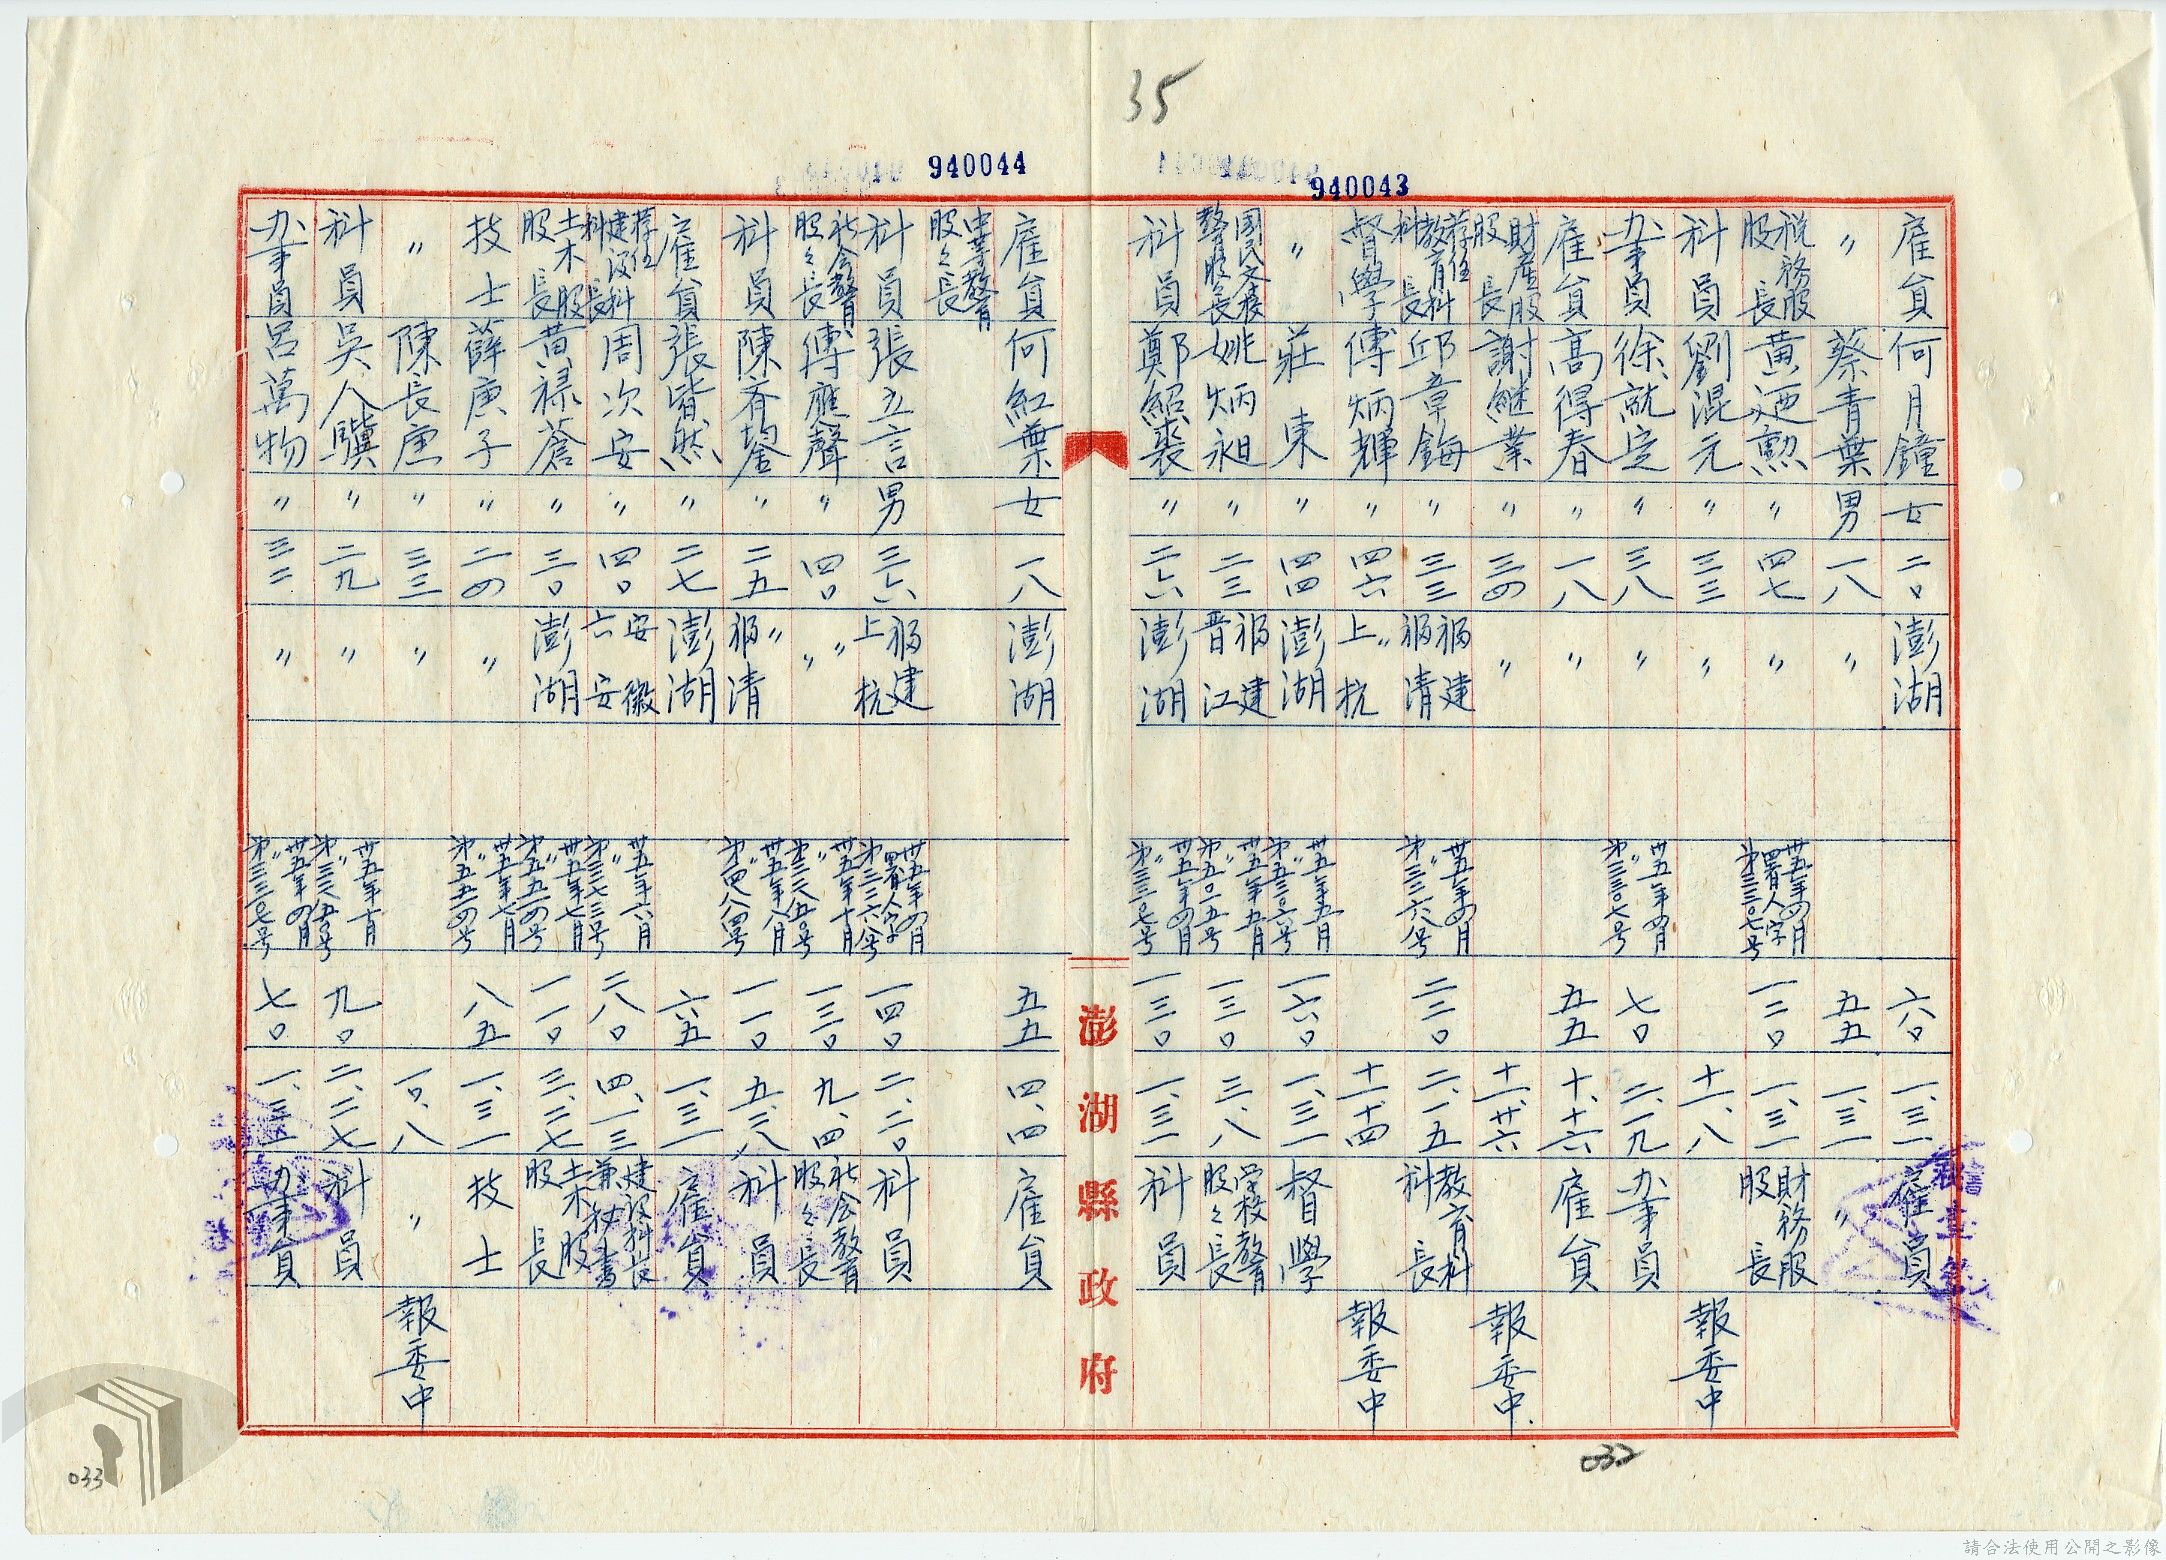 35
940043
雇員 何月鐘 女 二〇 澎湖 六〇 一、三一 雇員
〃 蔡青葉 男 一八 〃 五五 一、三一 〃
稅務股股長 黃迺勲 〃 四七 〃 卅五年四月署人字第三三〇七号 一三〇 一、三一 財務股股長
科員 劉混元 〃 三三 〃 十一、八 報委中
办事員 徐就定 〃 三八 〃 卅五年四月〃第三三〇七号 七〇 二、一九 办事員
雇員 高得春 〃 一八 〃 五五 十、十六 雇員
財產股股長 謝継業 〃 三四 〃 十一、廿六 報委中
荐任教育科科長 邱章 〃 三三 福建福清 卅五年四月〃第三三六八号 二三〇 二、一五 教育科科長
督學 傅炳輝 〃 四六 〃上杭 十一、十四 報委中
〃 莊東 〃 四四 澎湖 卅五年五月〃第五三〇六号 一六〇 一、三一 督學
國民学校教育股々長 姚炳昶 〃 二三 福建晋江 卅五年五月〃第五〇一五号 一三〇 三、八 学校教育股々長
科員 鄭紹裘 〃 二六 澎湖 卅五年四月〃第三三〇七号 一三〇 一、三一 科員
澎湖縣政府
032
940044
雇員 何紅葉 女 一八 澎湖 五五 四、四 雇員
中等教育股々長
科員 張五言 男 三六 福建上杭 卅五年四月署人字第三三六八号 一四〇 二、二〇 科員
社会教育股々長 傅應聲 〃 四〇 〃〃 卅五年十月〃 一三〇 九、四 社会教育股々長
科員 陳斉鋆 〃 二五 〃福清 卅五年八月〃 一一〇 五、二八 科員
雇員 張皆然 〃 二七 澎湖 六五 一、三一 雇員
荐任建設科科長 周次安 〃 四〇 安徽六安 卅五年六月〃第三三七三号 二八〇 四、一三 建設科長兼秘書
土木股股長 黃禄蒼 〃 三〇 澎湖 卅五年七月〃第五五一四号 一一〇 三、二七 土木股股長
技士 薛庚子 〃 二四 〃 卅五年七月〃第五五一四号 八五 一、三一 技士
〃 陳長庚 〃 三三 〃 一〇、八 〃 報委中
科員 吳人驥 〃 二九 〃 卅五年十月〃 九〇 二、二七 科員
办事員 呂萬物 〃 三二 〃 卅五年四月〃第三三〇七号 七〇 一、三一 办事員
033
請合法使用公開之影像